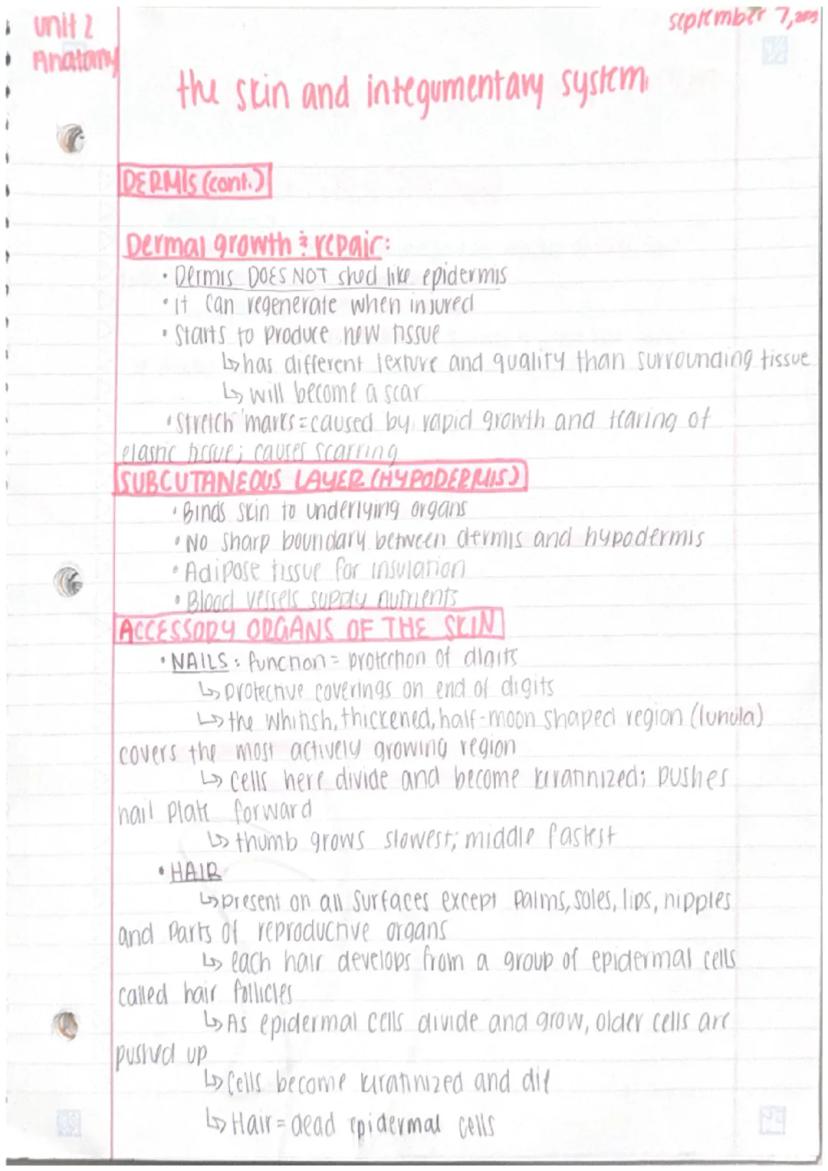 unit 2
Anatomy
september 7,
the skin and integumentary system
DERMIS (cont.)
Dermal growth & repair:
• Dermis DOES NOT shed like epidermis
• It can regenerate when injured
• Starts to produce new tissue
↳ has different texture and quality than surrounding tissue
↳ will become a scar
• Stretch marks = caused by rapid growth and tearing of
elastic tissue; causes scarring
SUBCUTANEOUS LAYER (HYPODERMIS)
• Binds skin to underlying organs
• No sharp boundary between dermis and hypodermis
• Adipose tissue for insulation
• Blood vessels supply nutrients
ACCESSORY ORGANS OF THE SKIN
• NAILS: function = protection of digits
↳ protective coverings on end of digits
↳ the whitish, thickened, half-moon shaped region (lunula)
covers the most actively growing region
↳ cells here divide and become keratinized; pushes
nail plate forward
↳ thumb grows slowest; middle fastest
• HAIR
↳ present on all surfaces except palms, soles, lips, nipples
and parts of reproductive organs
↳ each hair develops from a group of epidermal cells
called hair follicles
↳ As epidermal cells divide and grow, older cells are
pushed up
↳ Cells become keratinized and die
↳ Hair = dead epidermal cells